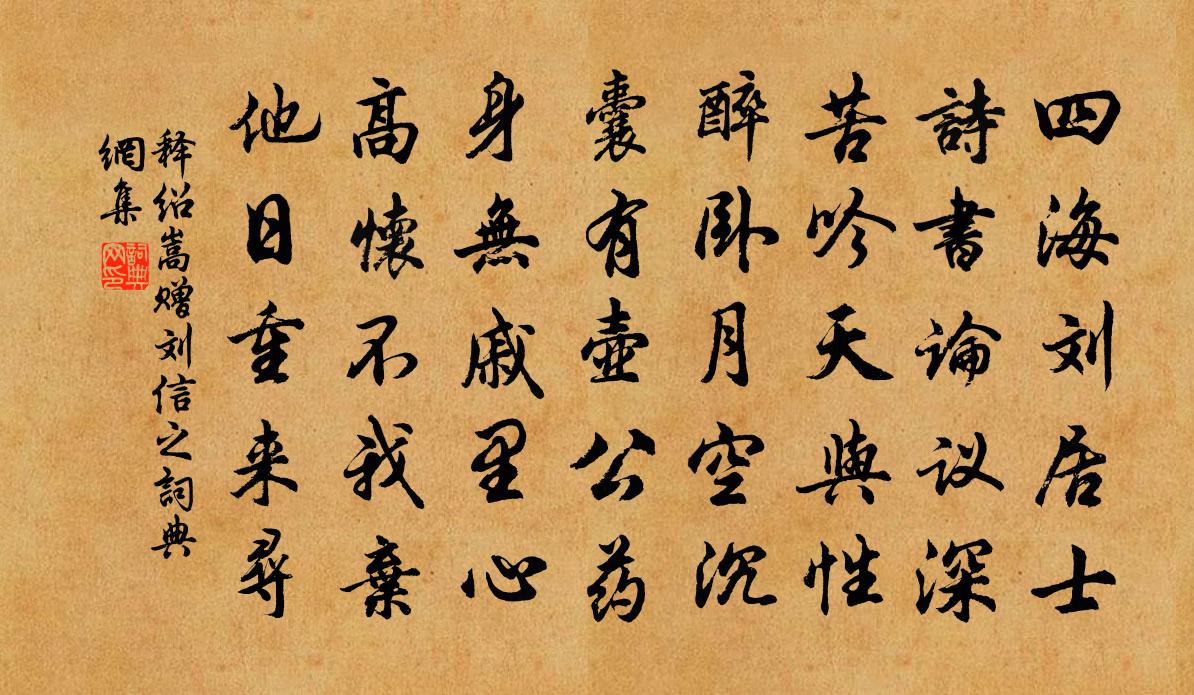 四海刘居士
詩書論议深
苦吟天與性
醉卧月空沉
囊有壶公药
身無戚里心
高懷不我棄
他日重来尋
释绍嵩赠刘信之詞典
網集
詞典网印